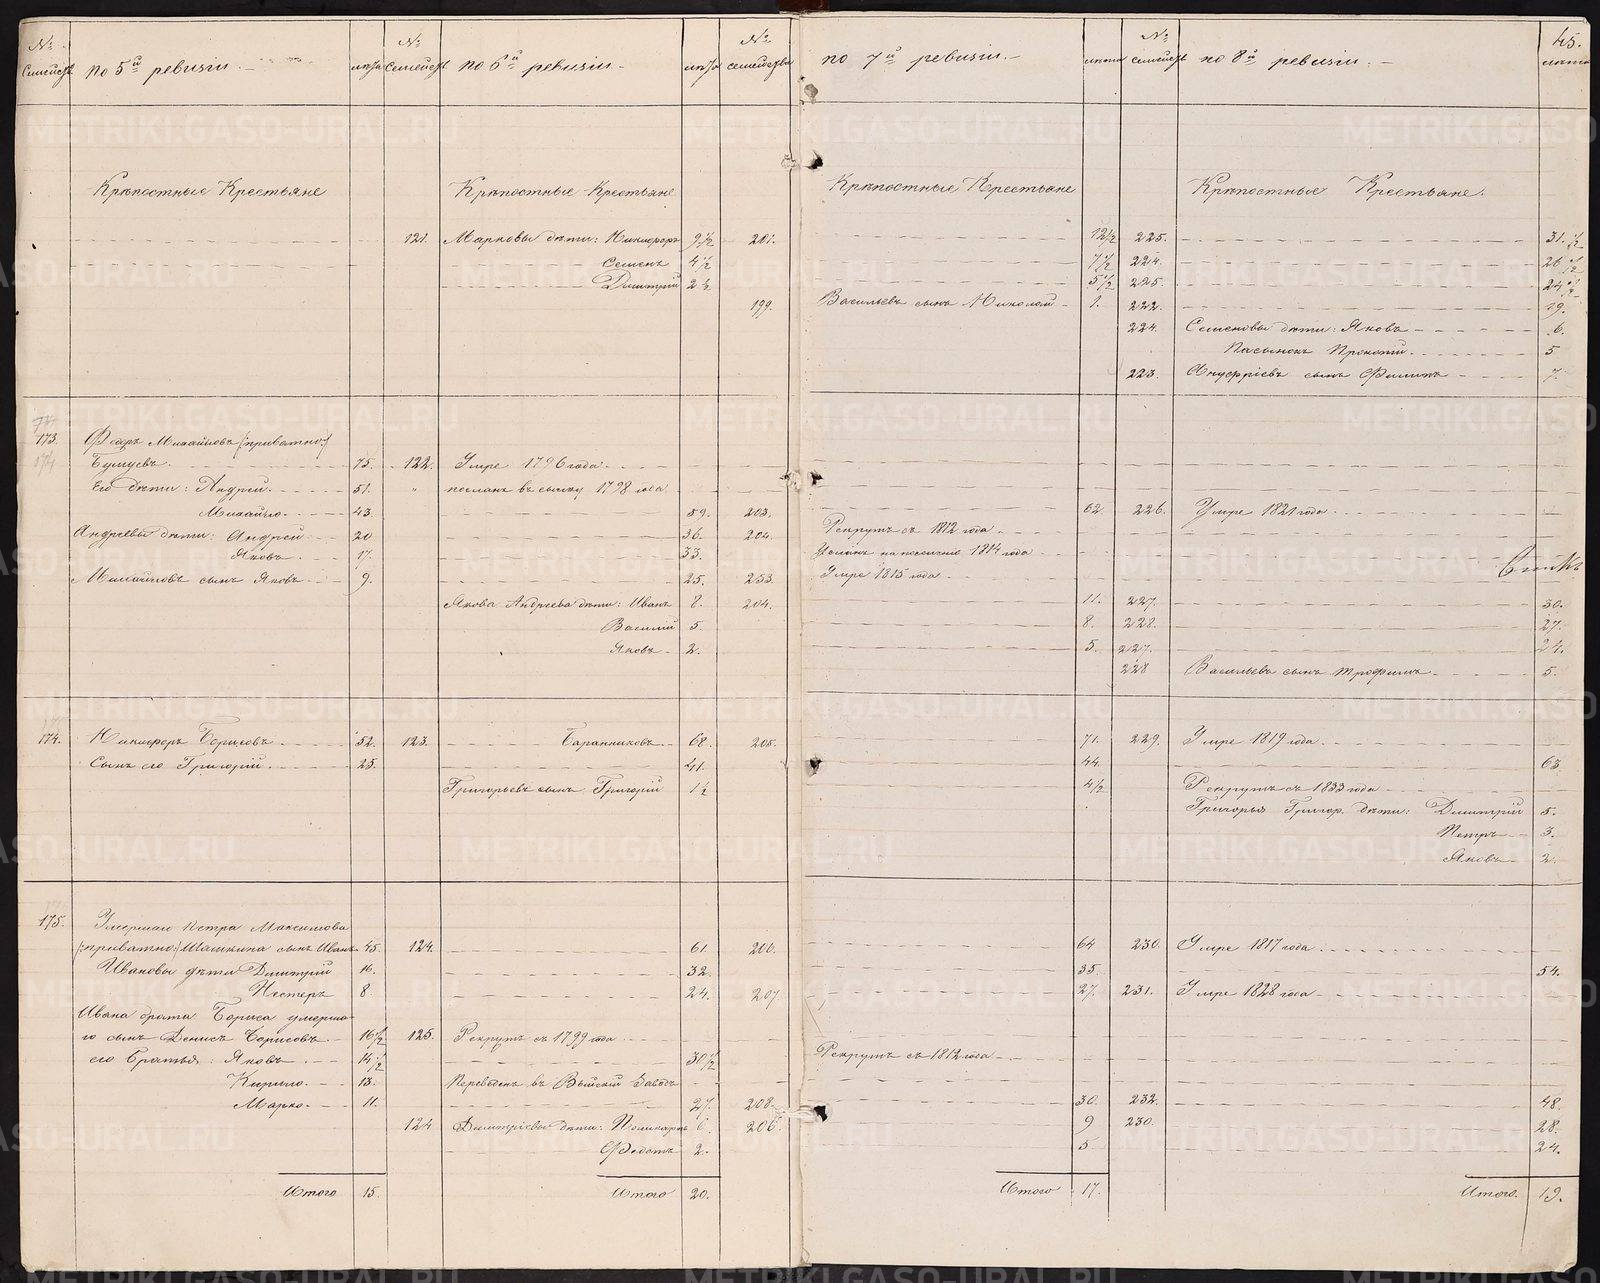 № семействъ по 5й ревизiи. лѣта № семействъ по 6й ревизiи лѣта № семейства по 7й ревизiи. лѣта № семействъ по 8й ревизiи. 45. лѣта
Крѣпостные Крестьяне Крѣпостные Крестьяне Крѣпостные Крестьяне Крѣпостные Крестьяне.
121. Марковы дѣти: Никифоръ 9 1/2 201. 12 1/2 225. 31. 1/2
Семенъ 4 1/2 7 1/2 224. 26 1/2
Дмитрiй 2 1/2 5 1/2 225. 24 1/2
199. Васильевъ сынъ Николай 1. 222. 19.
224. Семеновы дѣти: Яковъ 6.
Пасынокъ Прокопiй. 5
223. Ануфрiевъ сынъ Филипъ 7.
173. Федоръ Михайловъ /:приватно:/
Бушуевъ. 75. 122. Умре 1796 года.
Его дѣти: Андрей. 51. " посланъ въ сылку 1798 года
Михайло. 43. 59. 203. 62. 226. Умре 1821 года.
Андреевы дѣти: Андрей 20 36. 204. Рекрутъ съ 1812 года.
Яковъ. 17. 33. Усланъ на поселенiе 1814 года
Михайловъ сынъ Яковъ. 9. 25. 253. Умре 1815 года.
Якова Андреева дѣти: Иванъ 8. 204. 11. 227. 30.
Василiй 5. 8. 228. 27.
Яковъ 2. 5. 227. 24.
228 Васильевъ сынъ Трофимъ. 5.
174. Никифоръ Борисовъ. 52. 123. Баранниковъ. 68. 205. 71. 229. Умре 1819 года.
Сынъ его Григорiй. 25. 41. 44. 63.
Григорьевъ сынъ Григорiй 1 1/2 4 1/2 Рекрутъ съ 1833 года
Григорья Григор. дѣти: Дмитрiй 5.
Петръ 3.
Яковъ 2.
175. Умершаго Петра Максимова
/:приватно:/ Шашкина сынъ Иванъ 45. 124. 61. 206. 64 230. Умре 1817 года.
Ивановы дѣти Дмитрiй 16. 32. 35. 54.
Нестеръ 8. 24. 207. 27. 231. Умре 1828 года
Ивана брата Бориса умерша-
го сынъ Денисъ Борисовъ 16 1/2 125. Рекрутъ съ 1799 года
его Братья: Яковъ. 14 1/2 30 1/2 Рекрутъ съ 1812 года
Кирило. 13. Переведенъ въ Выйскiй Заводъ
Марко. 11. 27. 208. 30. 232. 48.
124 Дмитрiевы дѣти: Поликарпъ 6. 206. 9 230. 28.
Федотъ 2. 5 24.
Итого 15. Итого 20. Итого 17. Итого. 19.
METRIKI.GASO-URAL.RU